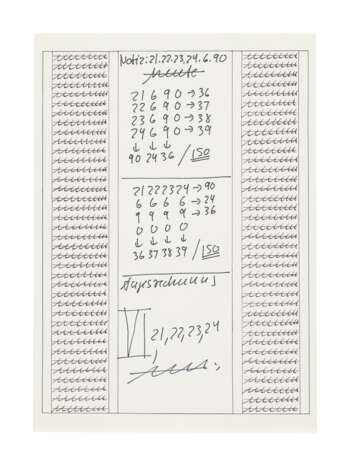 Notiz: 21.22.23,24.6.90
heute
21 6 9 0 → 36
22 6 9 0 → 37
23 6 9 0 → 38
24 6 9 0 → 39
↓ ↓ ↓
90 24 36 / 150
21 22 23 24 → 90
6 6 6 6 → 24
9 9 9 9 → 36
0 0 0 0
↓ ↓ ↓ ↓
36 37 38 39 / 150
Tagesrechnung
VI, 21,22,23,24